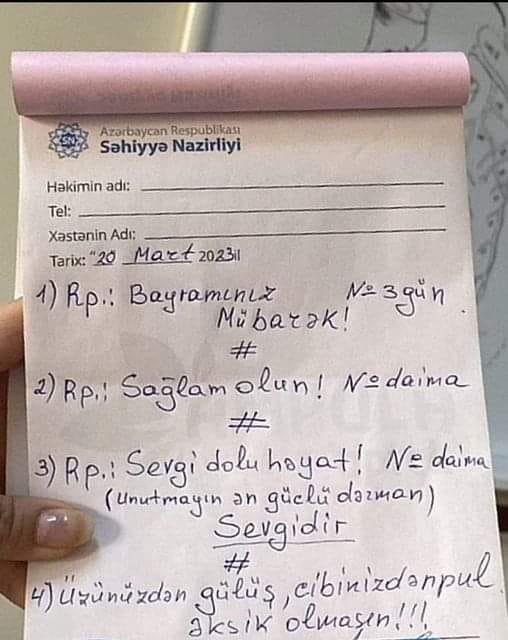 Azərbaycan Respublikası
Səhiyyə Nazirliyi
Həkimin adı:
Tel:
Xəstənin Adı:
Tarix: "20 Mart 2023il
1) Rp.: Bayramınız № 3 gün
Mübarək!
#
2) Rp.: Sağlam olun! № daima
#
3) Rp.: Sevgi dolu həyat! № daima
(Unutmayın ən güclü dərman)
Sevgidir
#
4) Üzünüzdən gülüş, cibinizdən pul
əksik olmasın!!!